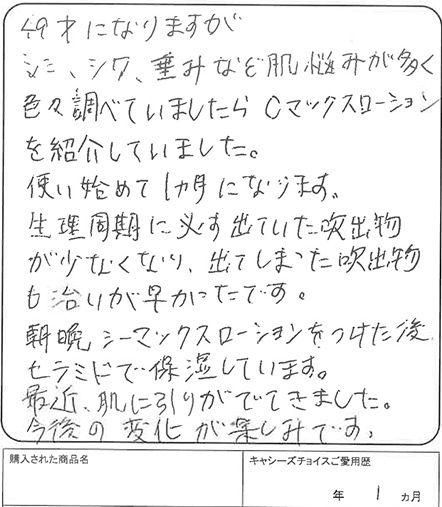 49才になりますが
シミ、シワ、垂みなど肌悩みが多く
色々調べていましたらCマックスローション
を紹介していました。
使い始めて1カ月になります。
生理周期に必ず出ていた吹出物
が少なくなり、出てしまった吹出物
も治りが早かったです。
朝晩シーマックスローションをつけた後
セラミドで保湿しています。
最近、肌に引りがでてきました。
今後の変化が楽しみです。
購入された商品名
キャシーズチョイスご愛用歴
年 1 ヵ月